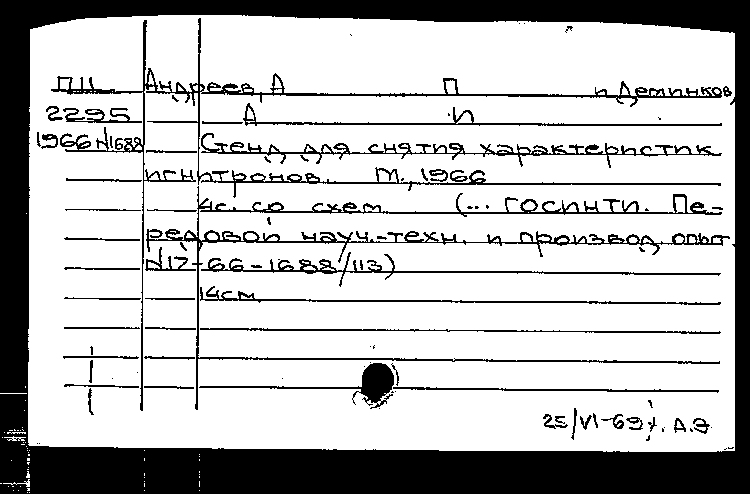 П11 Андреев, А П и Деминков,
2295 А И
1966 №1688 Стенд для снятия характеристик
игнитронов. М., 1966
4с. со схем (... ГОСИНТИ. Пе-
редовой науч.-техн. и производ. опыт.
№17-66-1688/113)
14см.
25/VI-69г. А.Э